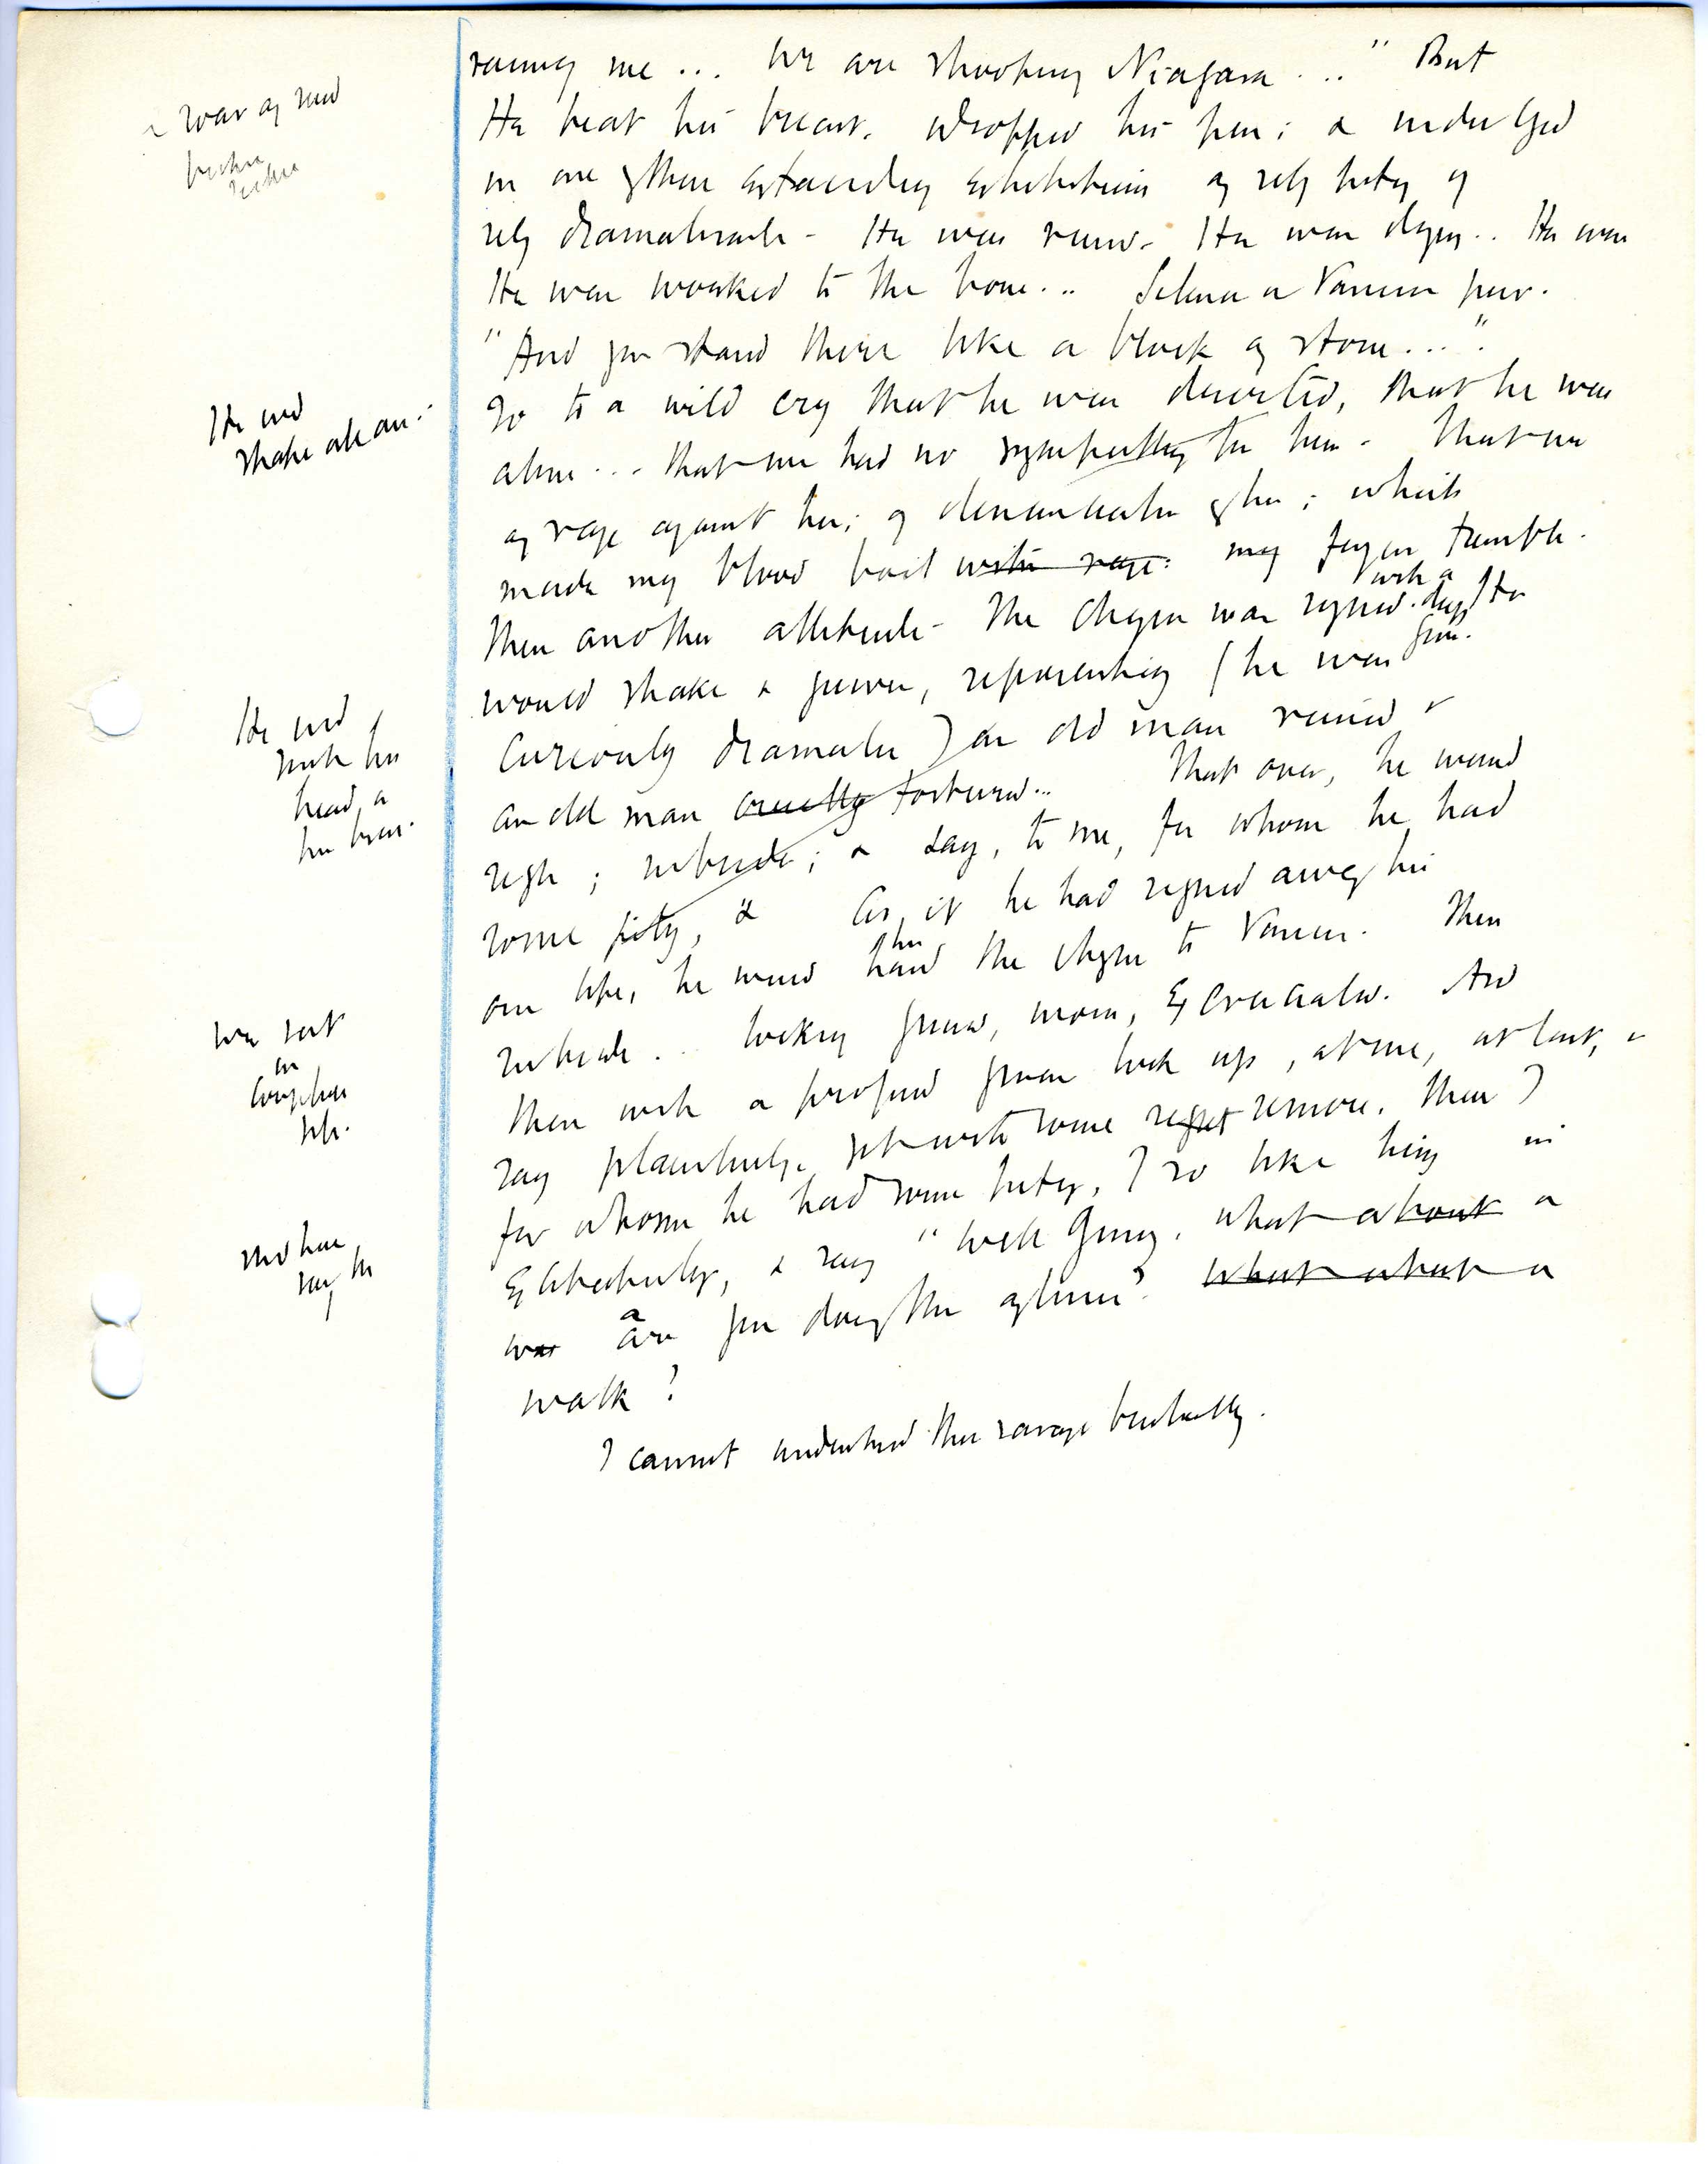 ruining me ... We are shooting Niagara ... " But
He beat his breast. dropped his pen; & indulged
in one of those extraordinary exhibitions of self pity of
self dramatisation - He was ruined. He was dying .. He was
He was worked to the bone ... Vanessa
"And you stand there like a block of stone ... ".
So to a wild cry that he was deserted, that he was
alone ... that we had no sympathy for him - that was
of rage against her; of denunciation of her; which
made my blood boil with rage: my fingers tremble.
Then another attitude - The cheque was signed. with a deep groan. He
would shake & quiver, representing (he was
curiously dramatic) an old man ruined &
an old man cruelly tortured ... That over, he would
sigh; subside; & say, to me, for whom he had
some pity, & As if he had signed away his
own life, he would then hand the cheque to Vanessa. Then
subside .. looking ground, worn, excruciated. And
then with a profound groan look up, at me, at last, &
say plaintively, yet with some regret remorse. then I
for whom he had some pity, I so like him, in
exhibitions, & say " Well Ginny, what about a
was are you doing this afternoon? what about a
walk?
I cannot understand this savage brutality.
He wd
shake all over.
He wd
sink his
head, &
his
We sat
in
complete